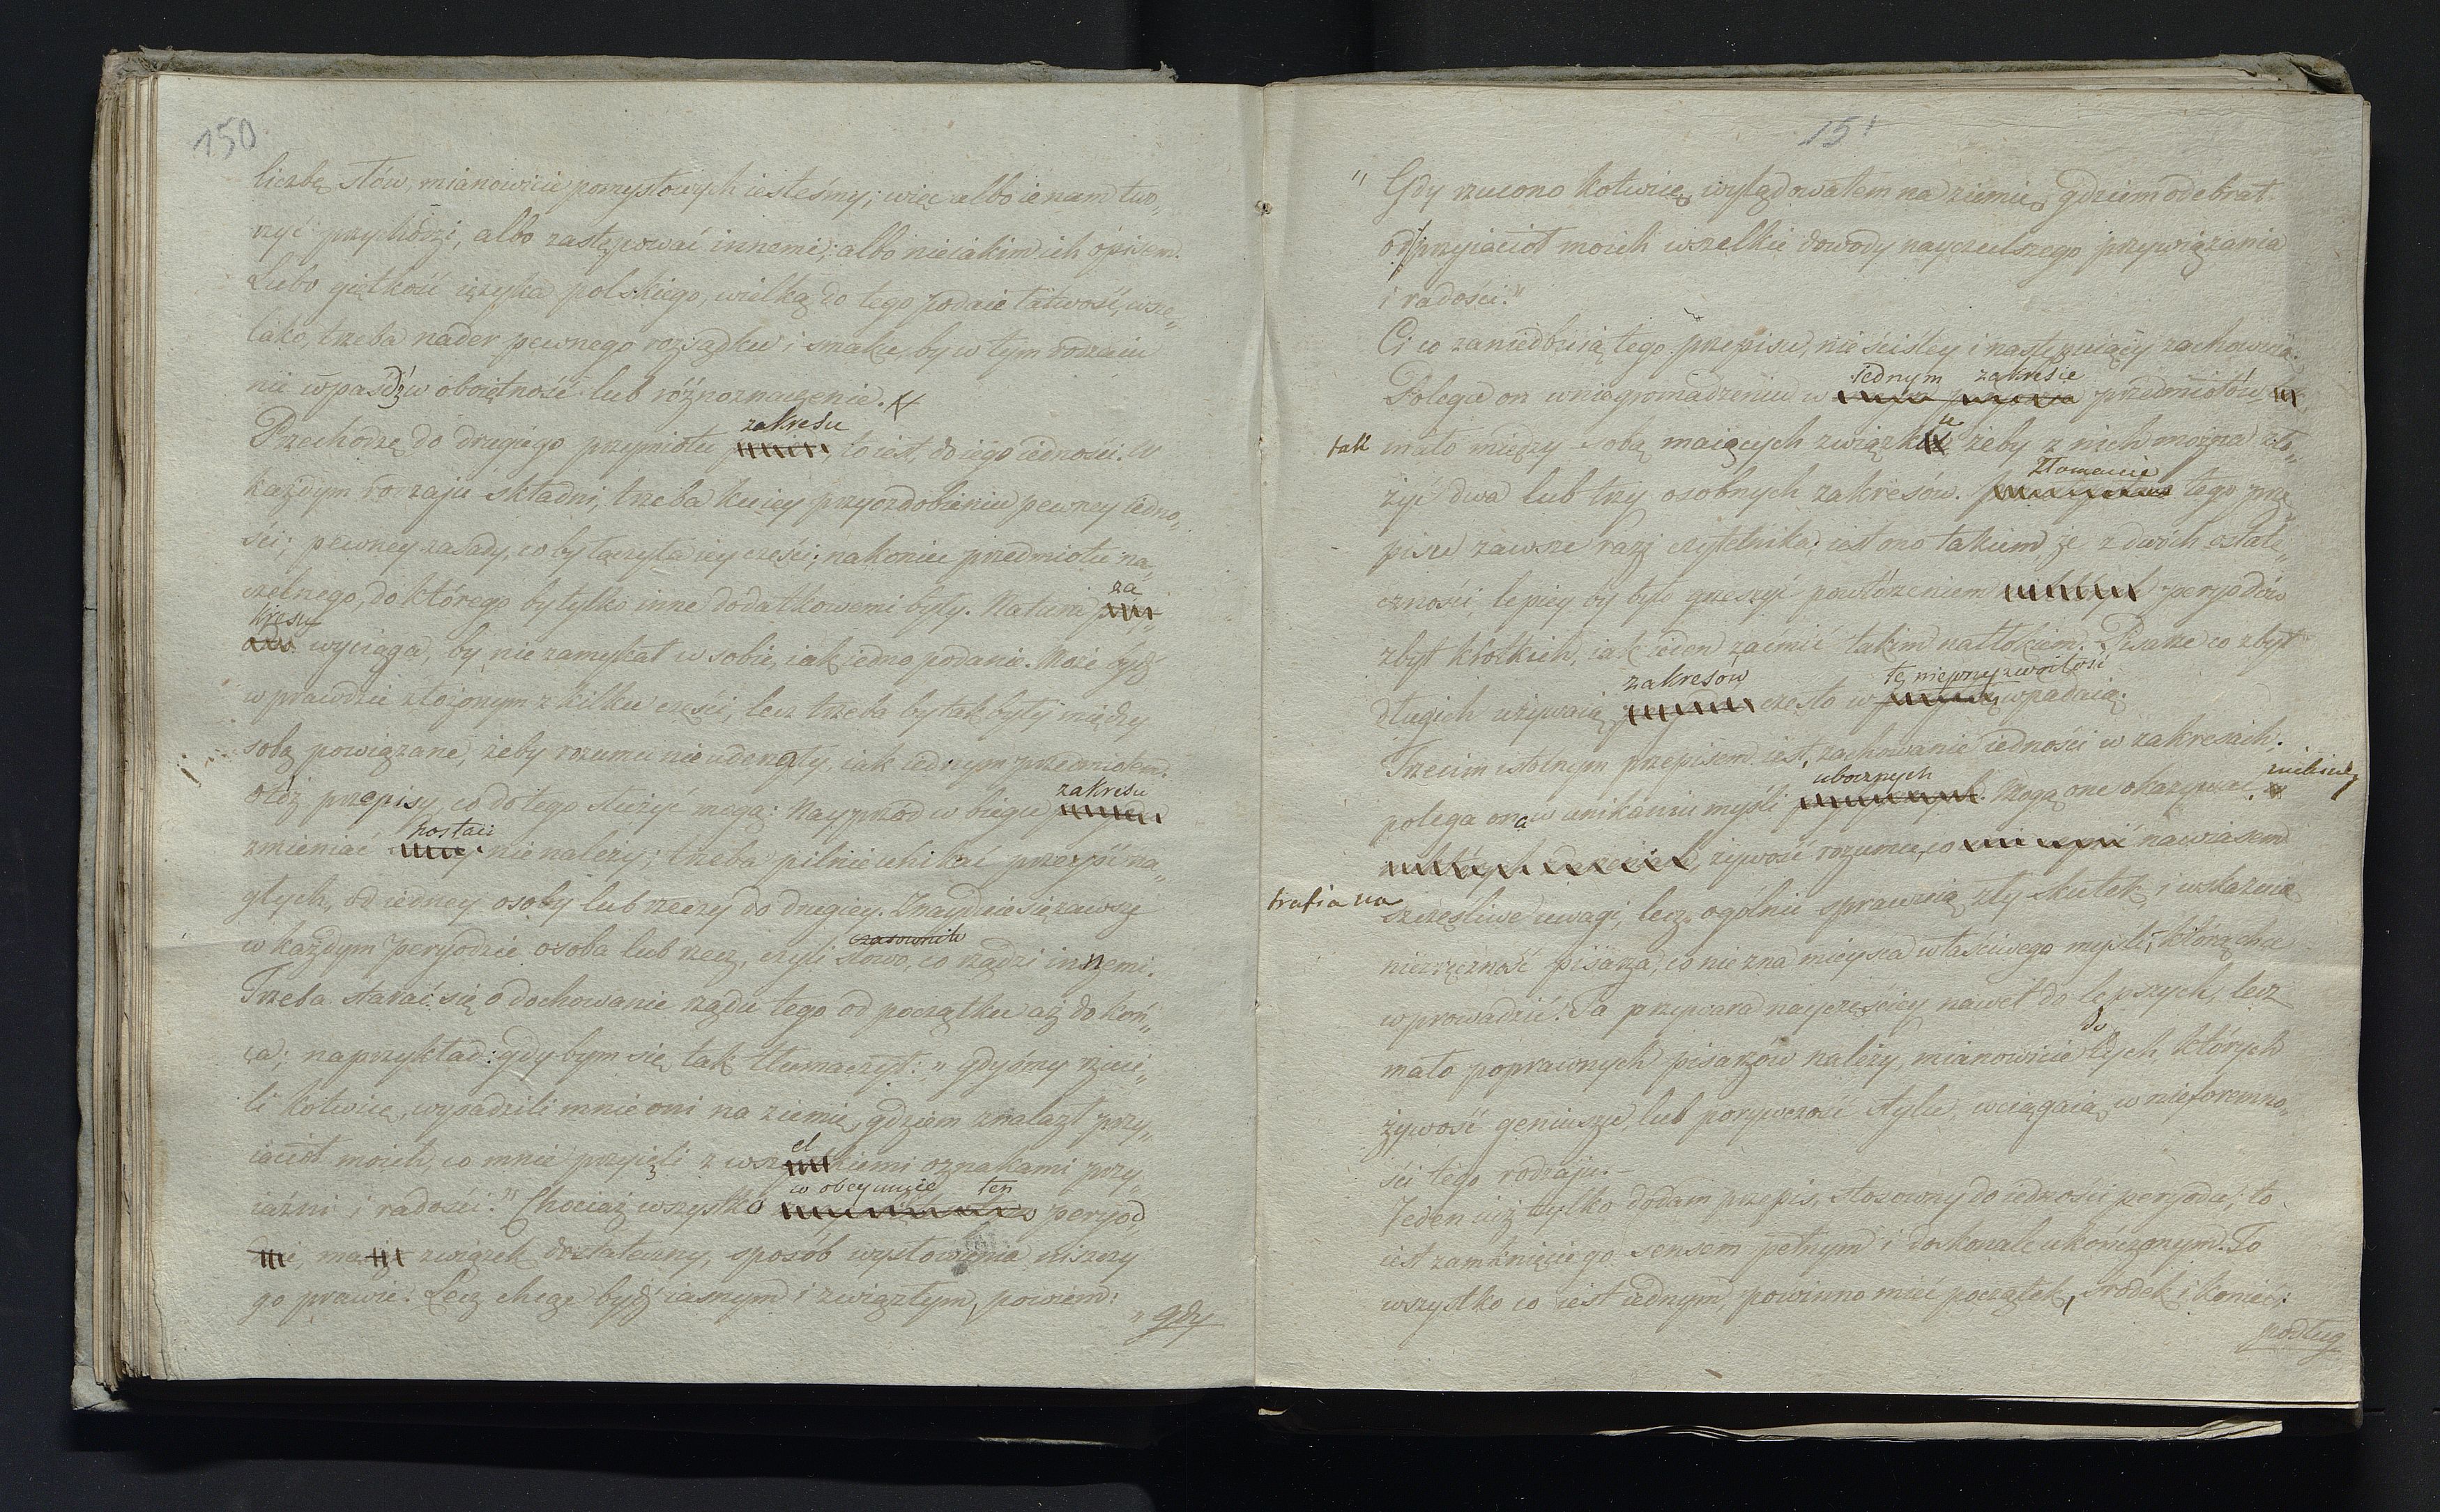 150
liczbę słów, mianowicie pomysłowych iesteśmy; więc albo ie nam two„
rzyć przychodzi, albo zastępować innemi; albo nieiakim ich opisem.
Lubo giętkość ięzyka polskiego, wielką do tego podaie łatwość, wsze„
lako, trzeba nader pewnego rozsądku i smaku, by w tym rodzaiu
nie wpaśdź w oboiętność lub różnoznaczenie.
zakresu
Przechodzę do drugiego przymiotu to iest, do iego iedności. W
każdym rodzaju składni, trzeba ku iey przyozdobieniu pewney iedno„
ści; pewney zasady, co by łączyła iey części; nakoniec przedmiotu na„
czelnego, do którego by tylko inne dodatkowemi były. Natura za
kresu wyciąga, by nie zamykał w sobie, iak iedno podanie. Może bydź
wprawdzie złożonym z kilku części, lecz trzeba by tak były między
sobą powiązane, żeby rozumu nie uderzały, iak iednym przedmiotem.
Otóż przepisy, co do tego służyć mogą: Nayprzód w biegu zakresu
zmieniać postaci nie należy; trzeba pilnie unikać przeyść na„
głych, od iedney osoby lub rzeczy do drugiey. Znayduie się zawsze
w każdym peryodzie osoba lub rzecz, czyli słowo, co rządzi innemi.
czasownik
Trzeba starać się o dochowanie rządu tego od początku aż do koń„
ca; naprzykład: gdybym się tak tłumaczył: „gdyśmy rzuci„
li kotwicę, wysadzili mnie oni na ziemię, gdziem znalazł przy„
iaciół moich, co mnie przyięli z wszelkiemi oznakami przy„
iaźni i radości." Chociaż wszystko co obeymuie ten peryod,
ma związek dostateczny, sposób wysłowienia niszczy
go prawie. Lecz chcąc bydź iasnym i zwięzłym, powiem:
„gdy
151
„Gdy rzucono kotwicę, wylądowałem na ziemię, gdziem odebrał
od przyiaciół moich wszelkie dowody nayczulszego przywiązania
i radości."
Ci co zaniedbuią tego przepisu, nie ściśley i następuiący zachowuią.
Polega on w niegromadzeniu w iednym zakresie przedmiotów
tak mało między sobą maiących związku żeby z nich można zło„
żyć dwa lub trzy osobnych zakresów. Złamanie tego prze„
pisu zawsze razi czytelnika; iest ono takiem, że z dwóch ostate„
czności, lepiey by było grzeszyć powtórzeniem peryodów
zbyt krótkich, iak ieden zaćmić takim natłokiem. Pisarze co zbyt
długich używaią zakresów często w tę nieprzyzwoitość wpadaią.
Trzecim istotnym przepisem iest, zachowanie iedności w zakresach;
polega ona w unikaniu myśli ubocznych. Mogą one okazywać
żywość rozumu, co nawiasem
trafia na szczęśliwe uwagi; lecz ogólnie sprawuią zły skutek i wskazuią
niezręczność pisarza, co nie zna mieysca właściwego myśli, którą chce
wprowadzić. Ta przywara nayczęściey nawet do lepszych, lecz
mało poprawnych pisarzów należy, mianowicie do tych, których
żywość geniuszu, lub porywczość stylu, wciągaią w nieforemno„
ści tego rodzaju.
Jeden iuż tylko dodam przepis, stosowny do iedności peryodu; to
iest zamknięcie go sensem pełnym i doskonale ukończonym. To
wszystko co iest iednym, powinno mieć początek, środek i koniec;
podług